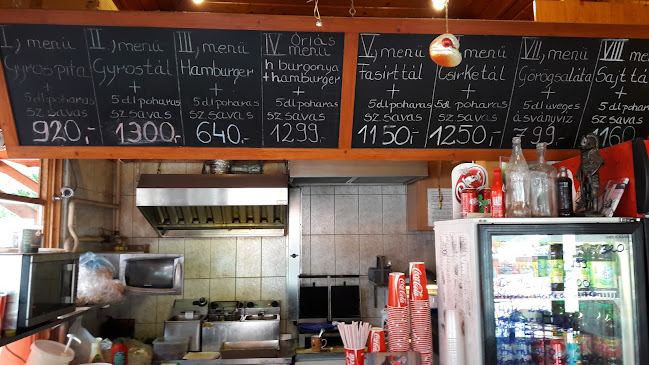 I., menü
Gyrospita
+
5 dl poharas
szsavas
920,-
II., menü
Gyrostál
+
5 dl poharas
szsavas
1300,-
III., menü
Hamburger
+
5 dl poharas
szsavas
640,-
IV Óriás
menü
h burgonya
+ hamburger
+
5 dl poharas
szsavas
1299.-
V., menü
Fasirttál
+
5 dl poharas
szsavas
1150,-
menü
Csirketál
+
5 dl poharas
szsavas
1250,-
VII., menü
Görögsaláta
+
5 dl üveges
ásványvíz
799.-
VIII menü
Sajttá
+
5 dl poharas
szsavas
1160
Coca-Cola
Coca-Cola
Coca-Cola